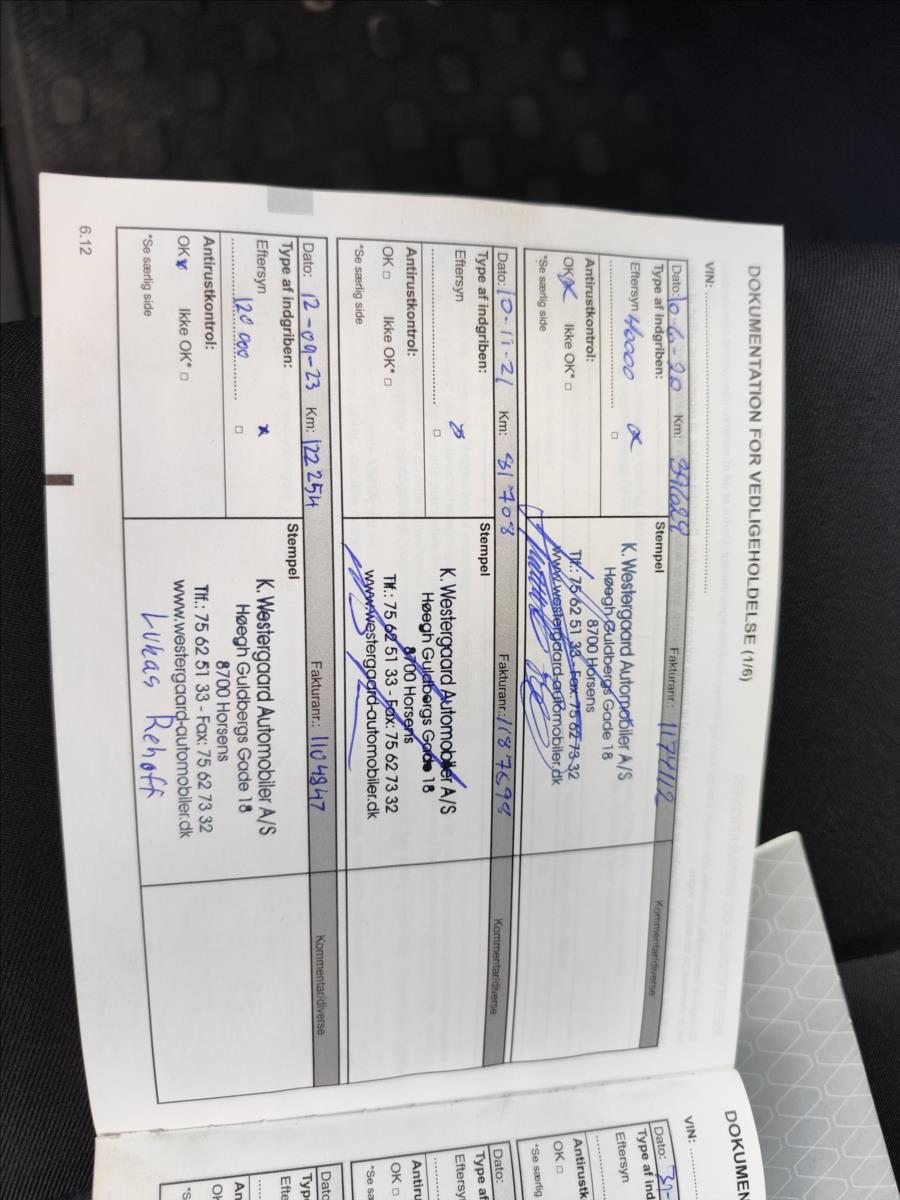 DOKUMENTATION FOR VEDLIGEHOLDELSE (1/6)
VIN: ........................
Dato: 10-6-20 Km: 39629 Fakturanr.: 1174112 Kommentar/diverse
Type af indgriben:
Eftersyn 40000
Antirustkontrol:
OK Ikke OK* □
*Se særlig side
Stempel
K. Westergaard Automobiler A/S
Høegh Guldbergs Gade 18
8700 Horsens
Tlf.: 75 62 51 33 - Fax: 75 62 73 32
www.westergaard-automobiler.dk
Dato: 10-11-21 Km: 81708 Fakturanr.: 1187698 Kommentar/diverse
Type af indgriben:
Eftersyn
Antirustkontrol:
OK □ Ikke OK* □
*Se særlig side
Stempel
K. Westergaard Automobiler A/S
Høegh Guldbergs Gade 18
8700 Horsens
Tlf.: 75 62 51 33 - Fax: 75 62 73 32
www.westergaard-automobiler.dk
Dato: 12-09-23 Km: 122254 Fakturanr.: 1104847 Kommentar/diverse
Type af indgriben:
Eftersyn x
120 000
Antirustkontrol:
OK x Ikke OK* □
*Se særlig side
Stempel
K. Westergaard Automobiler A/S
Høegh Guldbergs Gade 18
8700 Horsens
Tlf.: 75 62 51 33 - Fax: 75 62 73 32
www.westergaard-automobiler.dk
Lukas Rehoff
6.12
DOKUMEN
VIN:
Dato: 30-
Type af ind
Eftersyn
Antirustk
OK □
*Se særlig
Dato:
Type af
Eftersy
Antiru
OK □
*Se sæ
Dato
Typ
Efte
An
OK
*S